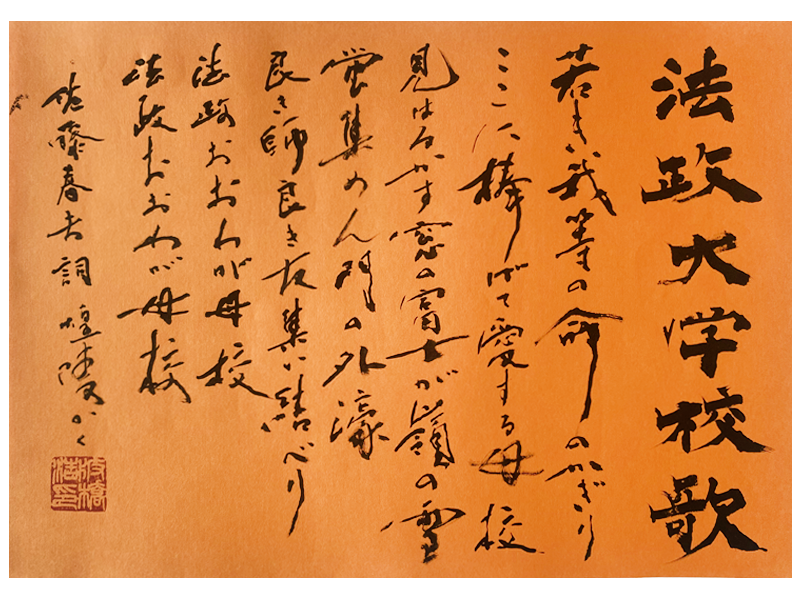 法政大学校歌
若き我等の命のかぎり
ここに捧げて愛する母校
見はるかす窓の富士が嶺の雪
蛍集めん門の外濠
良き師良き友集い結べり
法政おおわが母校
法政おおわが母校
佐藤春夫詞 煌陵かく